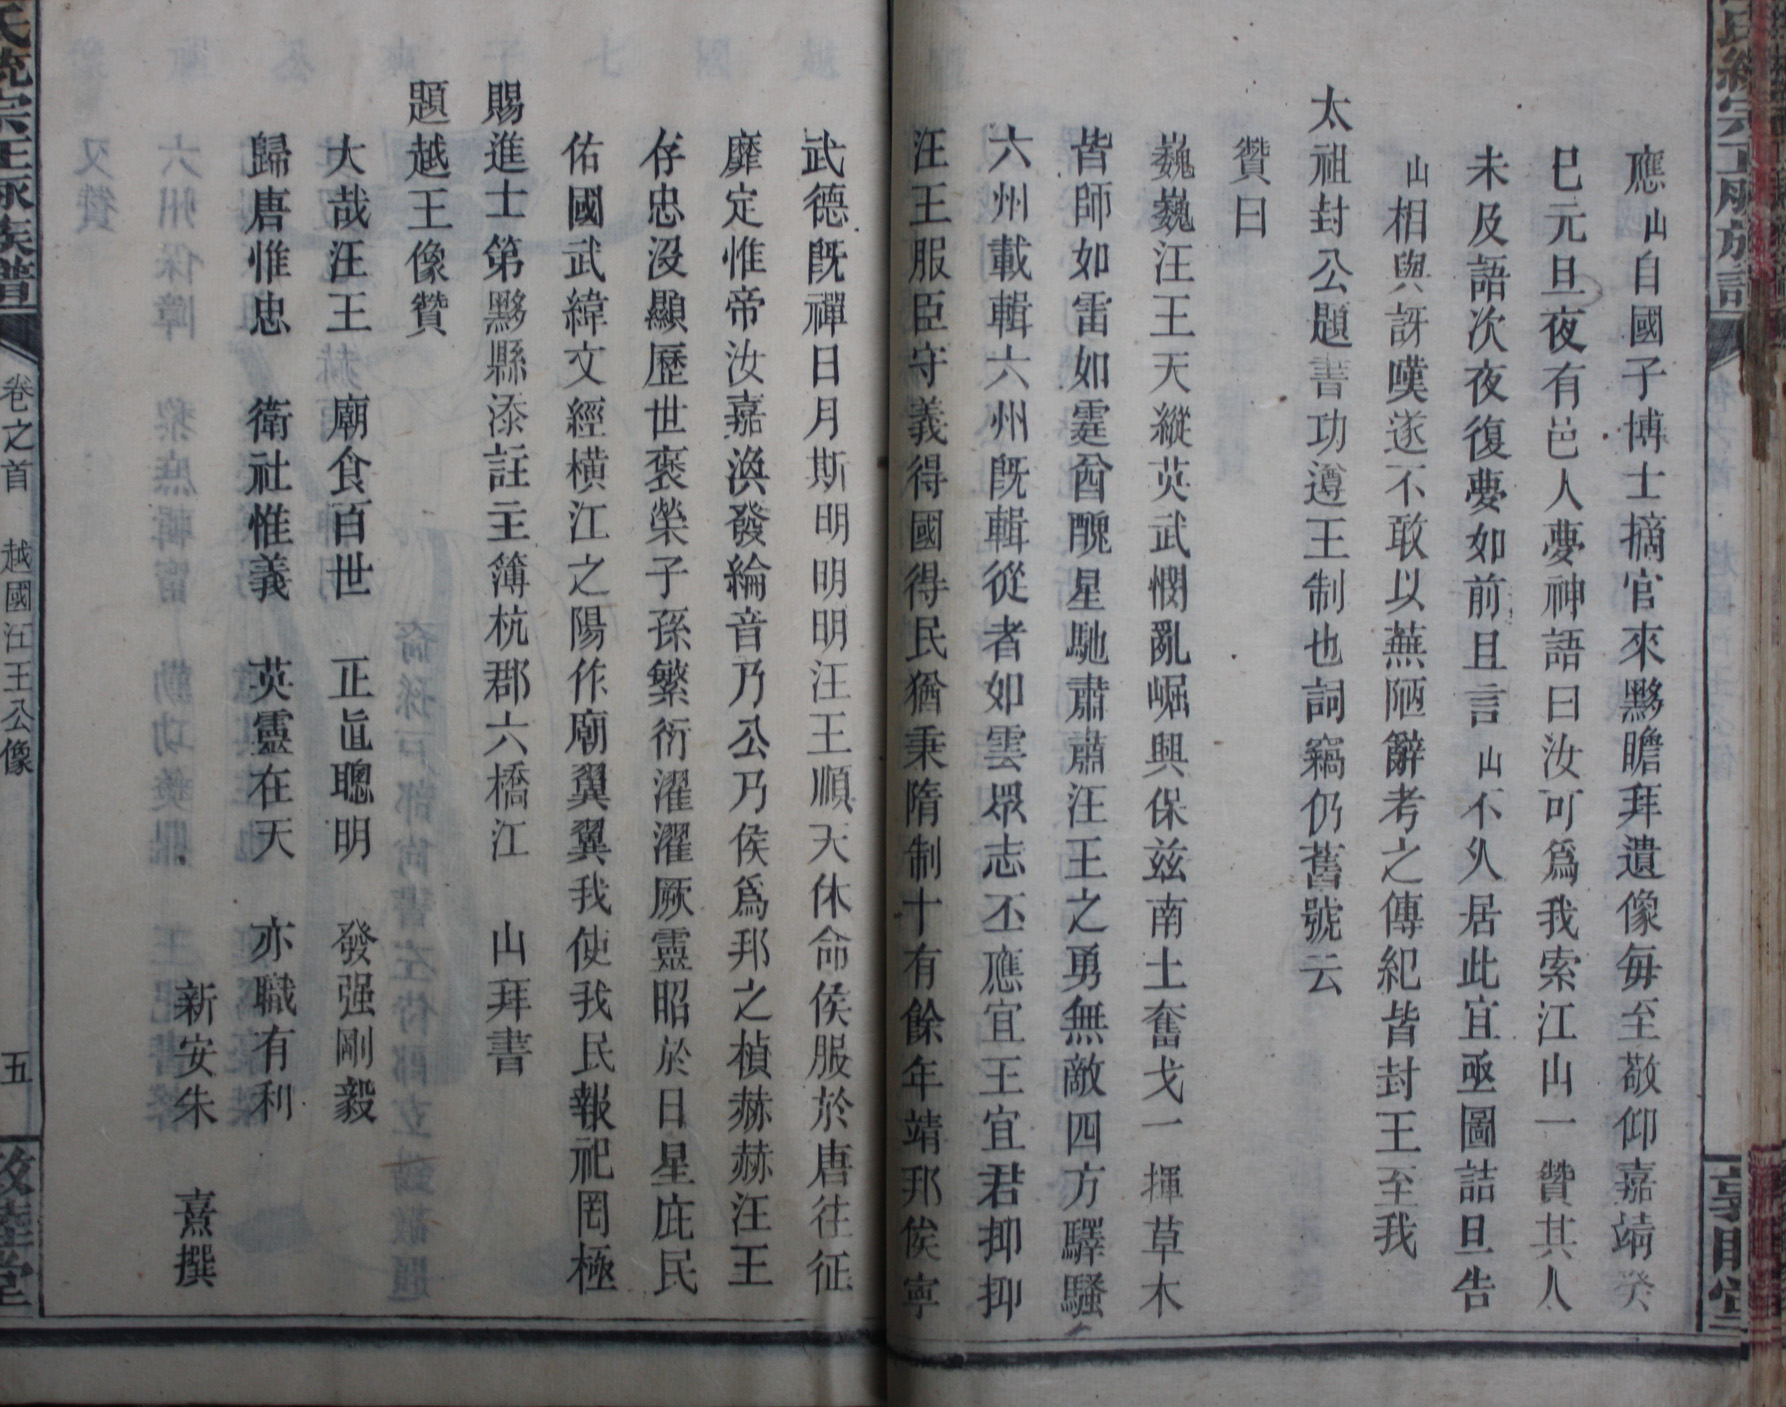 應山自國子博士摘官來黟瞻拜遺像每至敬仰嘉靖癸
巳元旦夜有邑人夢神語曰汝可爲我索江山一贊其人
未及語次夜復夢如前且言山不久居此宜亟圖詰旦告
山相與訝嘆遂不敢以蕪陋辭考之傳紀皆封王至我
太祖封公題書功遵王制也詞竊仍舊號云
贊曰
巍巍汪王天縱英武憫亂崛興保兹南土奮戈一揮草木
皆師如雷如霆酋醜星馳肅肅汪王之勇無敵四方驛騷
六州載輯六州旣輯從者如雲眾志丕應宜王宜君抑抑
汪王服臣守義得國得民猶秉隋制十有餘年靖邦俟寧
武德旣禪日月斯明明明汪王順天休命侯服於唐往征
靡定惟帝汝嘉渙發綸音乃公乃侯爲邦之楨赫赫汪王
存忠没顯歷世褒榮子孫繁衍濯濯厥靈昭於日星庇民
佑國武緯文經橫江之陽作廟翼翼我使我民報祀罔極
賜進士第黟縣添註主簿杭郡六橋江　山拜書
題越王像贊
大哉汪王　廟食百世　正直聰明　發强剛毅
歸唐惟忠　衛社惟義　英靈在天　亦職有利
新安朱　熹撰
卷之首　越國汪王公像　五